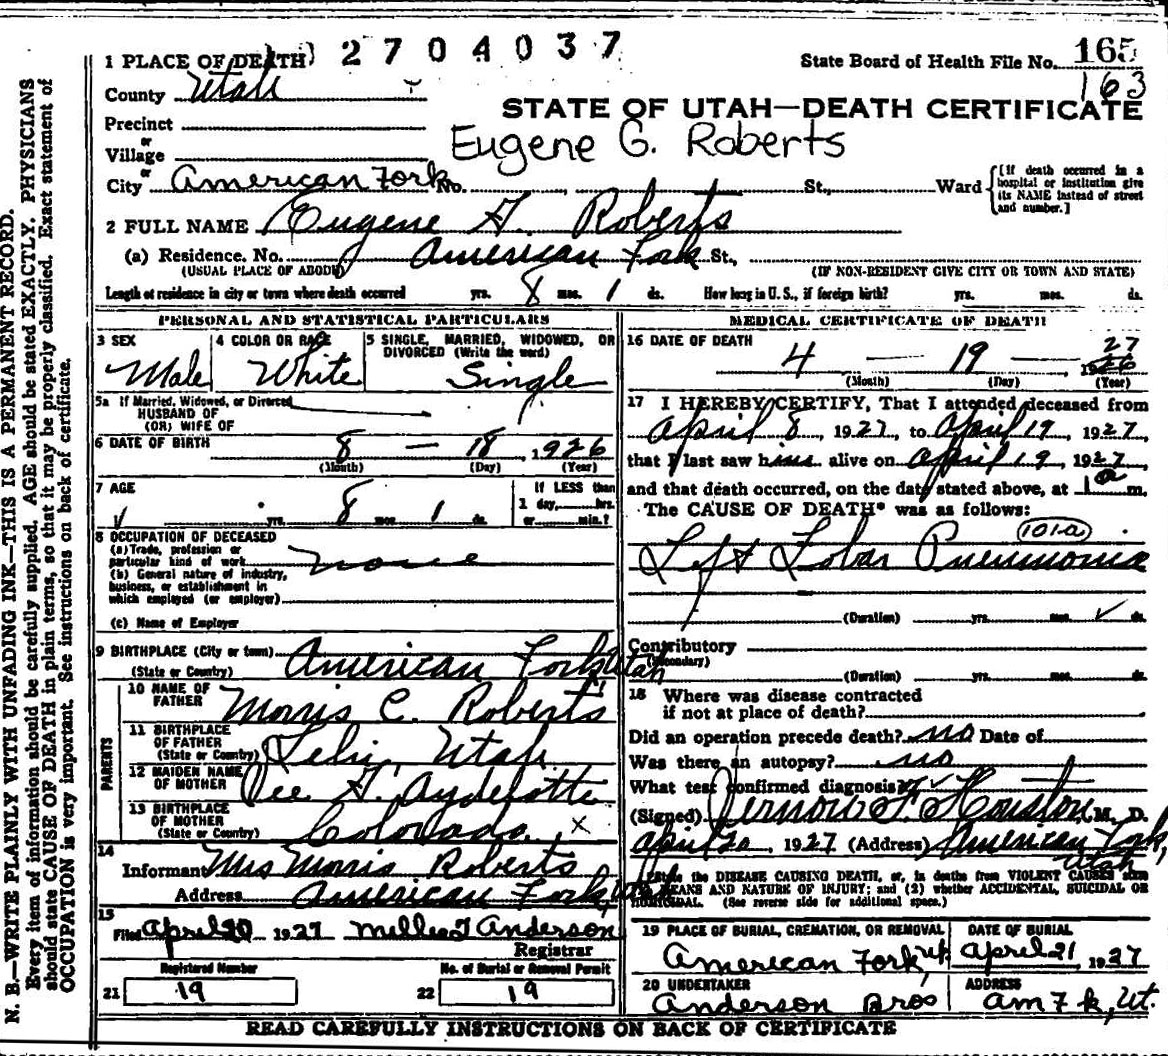 2704037
1 PLACE OF DEATH
State Board of Health File No. 165
163
County Utah
STATE OF UTAH—DEATH CERTIFICATE
Precinct
or
Village
Eugene G. Roberts
or
City American Fork No. St., Ward
[If death occurred in a hospital or institution give its NAME instead of street and number.]
2 FULL NAME Eugene G. Roberts
(a) Residence. No. American Fork St.,
(USUAL PLACE OF ABODE)
(IF NON-RESIDENT GIVE CITY OR TOWN AND STATE)
Length of residence in city or town where death occurred yrs. 8 mos. 1 ds. How long in U. S., if foreign birth? yrs. mos. ds.
PERSONAL AND STATISTICAL PARTICULARS
3 SEX
Male
4 COLOR OR RACE
White
5 SINGLE, MARRIED, WIDOWED, OR DIVORCED (Write the word)
Single
5a If Married, Widowed, or Divorced
HUSBAND OF
(OR) WIFE OF
6 DATE OF BIRTH 8 — 18, 1926
(Month) (Day) (Year)
7 AGE
yrs. 8 mos. 1 ds.
If LESS than
1 day, hrs.
or min.?
8 OCCUPATION OF DECEASED
(a) Trade, profession or
particular kind of work
none
(b) General nature of industry,
business, or establishment in
which employed (or employer)
(c) Name of Employer
9 BIRTHPLACE (City or town)
(State or Country)
American Fork Utah
PARENTS
10 NAME OF
FATHER
Morris C. Roberts
11 BIRTHPLACE
OF FATHER
(State or Country)
Lehi, Utah.
12 MAIDEN NAME
OF MOTHER
Vee G. Aydelotte
13 BIRTHPLACE
OF MOTHER
(State or Country)
Colorado. X
14
Informant Mrs Morris Roberts
Address American Fork
15
Filed April 20 1927 Anderson
Registrar
Registered Number
21 19
No. of Burial or Removal Permit
22 19
MEDICAL CERTIFICATE OF DEATH
16 DATE OF DEATH
4 — 19 — 1926 27
(Month) (Day) (Year)
17 I HEREBY CERTIFY, That I attended deceased from
April 8, 1927, to April 19, 1927
that I last saw him alive on April 19, 1927
and that death occurred, on the date stated above, at 1 a m.
The CAUSE OF DEATH* was as follows:
101-a
Left Lobar Pneumonia
(Duration) yrs. mos. ds.
Contributory
(Secondary)
(Duration) yrs. mos. ds.
18 Where was disease contracted
if not at place of death?
Did an operation precede death? no Date of
Was there an autopsy? no
What test confirmed diagnosis?
(Signed) Vernon F. Houston, M. D.
April 20, 1927 (Address) American Fork,
Utah
*State the DISEASE CAUSING DEATH, or, in deaths from VIOLENT CAUSES state
MEANS AND NATURE OF INJURY; and (2) whether ACCIDENTAL, SUICIDAL OR
HOMICIDAL. (See reverse side for additional space.)
19 PLACE OF BURIAL, CREMATION, OR REMOVAL
American Fork, Ut.
DATE OF BURIAL
April 21, 1927
20 UNDERTAKER
Anderson Bros
ADDRESS
Am Fk, Ut.
READ CAREFULLY INSTRUCTIONS ON BACK OF CERTIFICATE
N. B.—WRITE PLAINLY WITH UNFADING INK—THIS IS A PERMANENT RECORD.
Every item of information should be carefully supplied. AGE should be stated EXACTLY. PHYSICIANS
should state CAUSE OF DEATH in plain terms, so that it may be properly classified. Exact statement of
OCCUPATION is very important. See instructions on back of certificate.